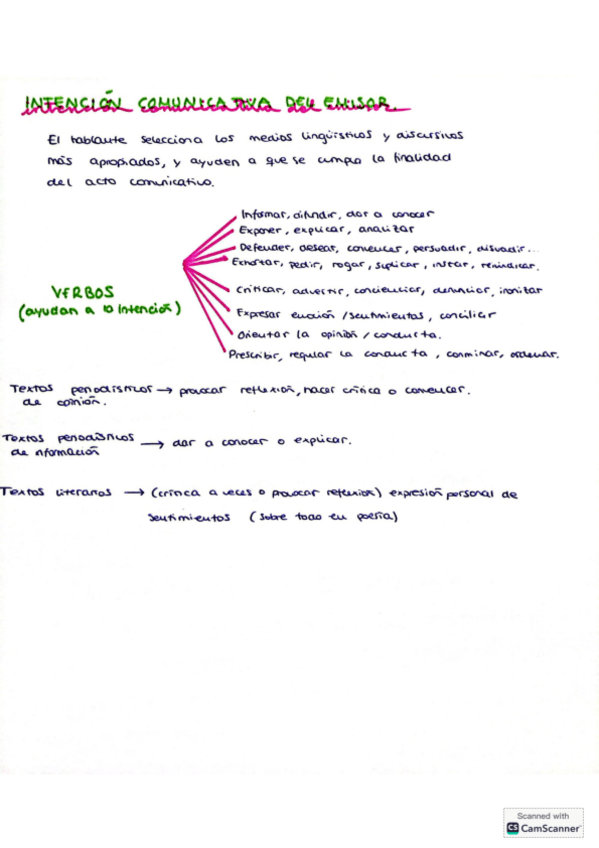 INTENCIÓN COMUNICATIVA DEL EMISOR.
El hablante selecciona los medios lingüísticos y discursivos
más apropiados, y ayuden a que se cumpla la finalidad
del acto comunicativo.
Informar, difundir, dar a conocer
Exponer, explicar, analizar
Defender, desear, convencer, persuadir, disuadir...
Exhortar, pedir, rogar, suplicar, instar, reivindicar.
VERBOS
(ayudan a la intención)
Criticar, advertir, concienciar, denunciar, ironizar
Expresar emoción /sentimientos, conciliar
Orientar la opinión / conducta.
Prescribir, regular la conducta, conminar, ordenar.
Textos periodísticos → provocar reflexión, hacer crítica o convencer.
de opinión.
Textos periodísticos → dar a conocer o explicar.
de información
Textos literarios → (crítica a veces o provocar reflexión) expresión personal de
sentimientos (sobre todo en poesía)
Scanned with
CS CamScanner